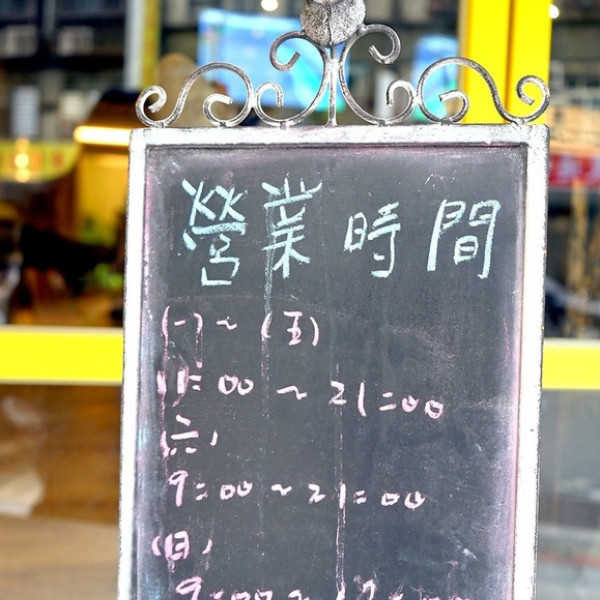 營業時間
(一)~(五)
11:00~21:00
(六)
9:00~21:00
(日)